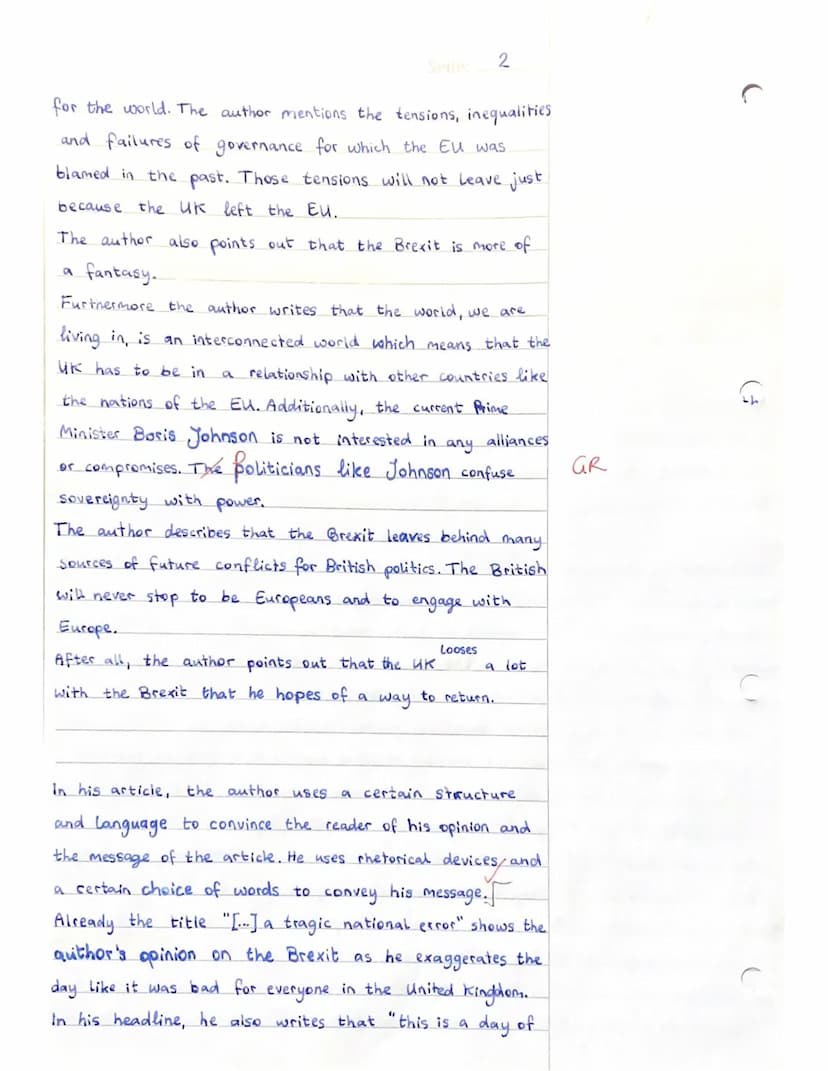 Seite: 2
for the world. The author mentions the tensions, inequalities
and failures of governance for which the EU was
blamed in the past. Those tensions will not leave just
because the UK left the EU.
The author also points out that the Brexit is more of
a fantasy.
Furthermore the author writes that the world, we are
living in, is an interconnected world which means that the
UK has to be in a relationship with other countries like
the nations of the EU. Additionally, the current Prime
Minister Boris Johnson is not interested in any alliances
or compromises. The Politicians like Johnson confuse GR
sovereignty with power.
The author describes that the Brexit leaves behind many
sources of future conflicts for British politics. The British
will never stop to be Europeans and to engage with
Europe.
After all, the author points out that the UK looses a lot
with the Brexit that he hopes of a way to return.
In his article, the author uses a certain structure
and language to convince the reader of his opinion and
the message of the article. He uses rhetorical devices, and
a certain choice of words to convey his message.
Already the title "[...] a tragic national error" shows the
author's opinion on the Brexit as he exaggerates the
day like it was bad for everyone in the United Kingdom.
In his headline, he also writes that "this is a day of